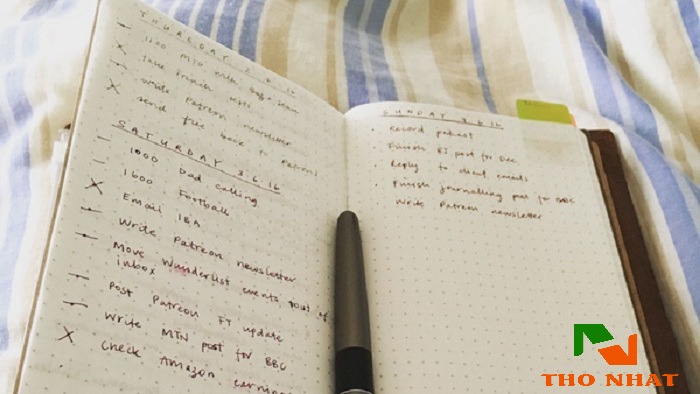 THURSDAY 2.6.16
1200 Mtg with
write Patreon newsletter
send
back to
SATURDAY 3.6.16
1000 Dad calling
1600 Football
Email IBA
Write Patreon newsletter
Move Wunderlist events out of
inbox
Post Patreon FT update
Write MTN post for BBC
Check Amazon earnings
SUNDAY 3.6.16
Record podcast
Finish BJ post for Dec
Reply to client emails
Finish journalling post for BBC
Write Patreon newsletter
THO NHAT